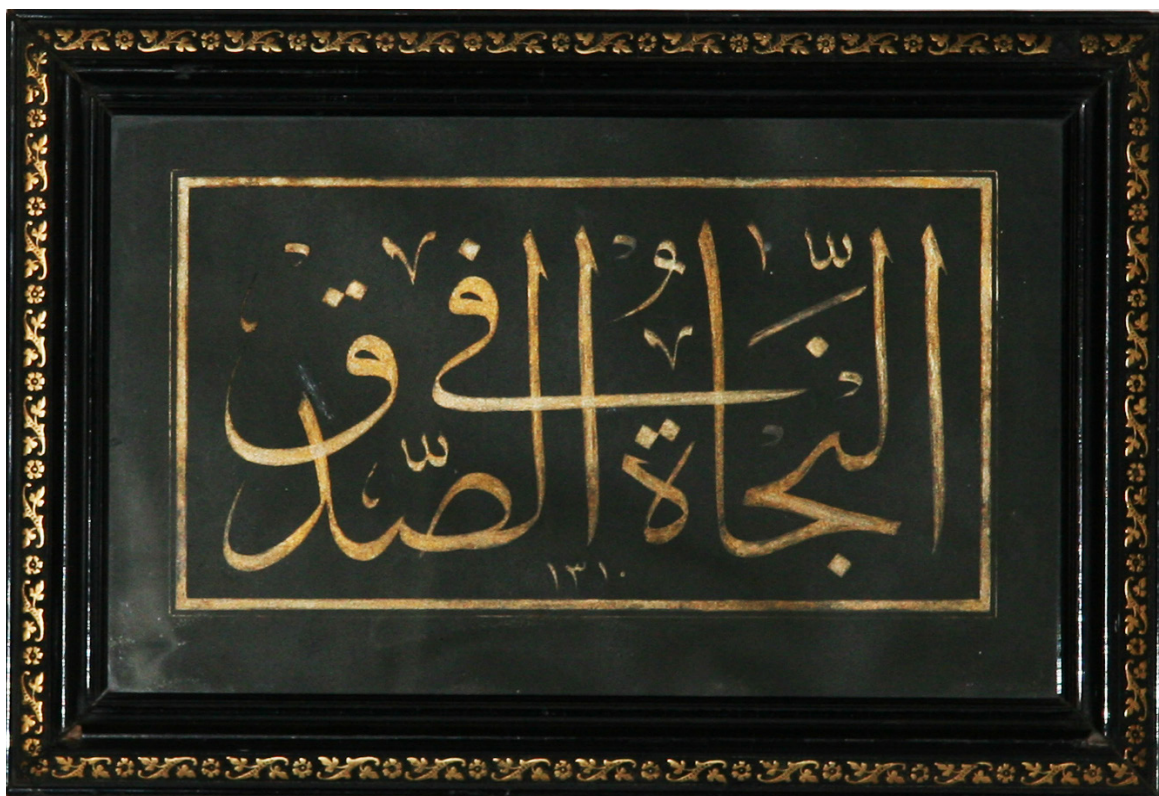 النَّجَاةُ فِي الصِّدْقِ
١٣١٠